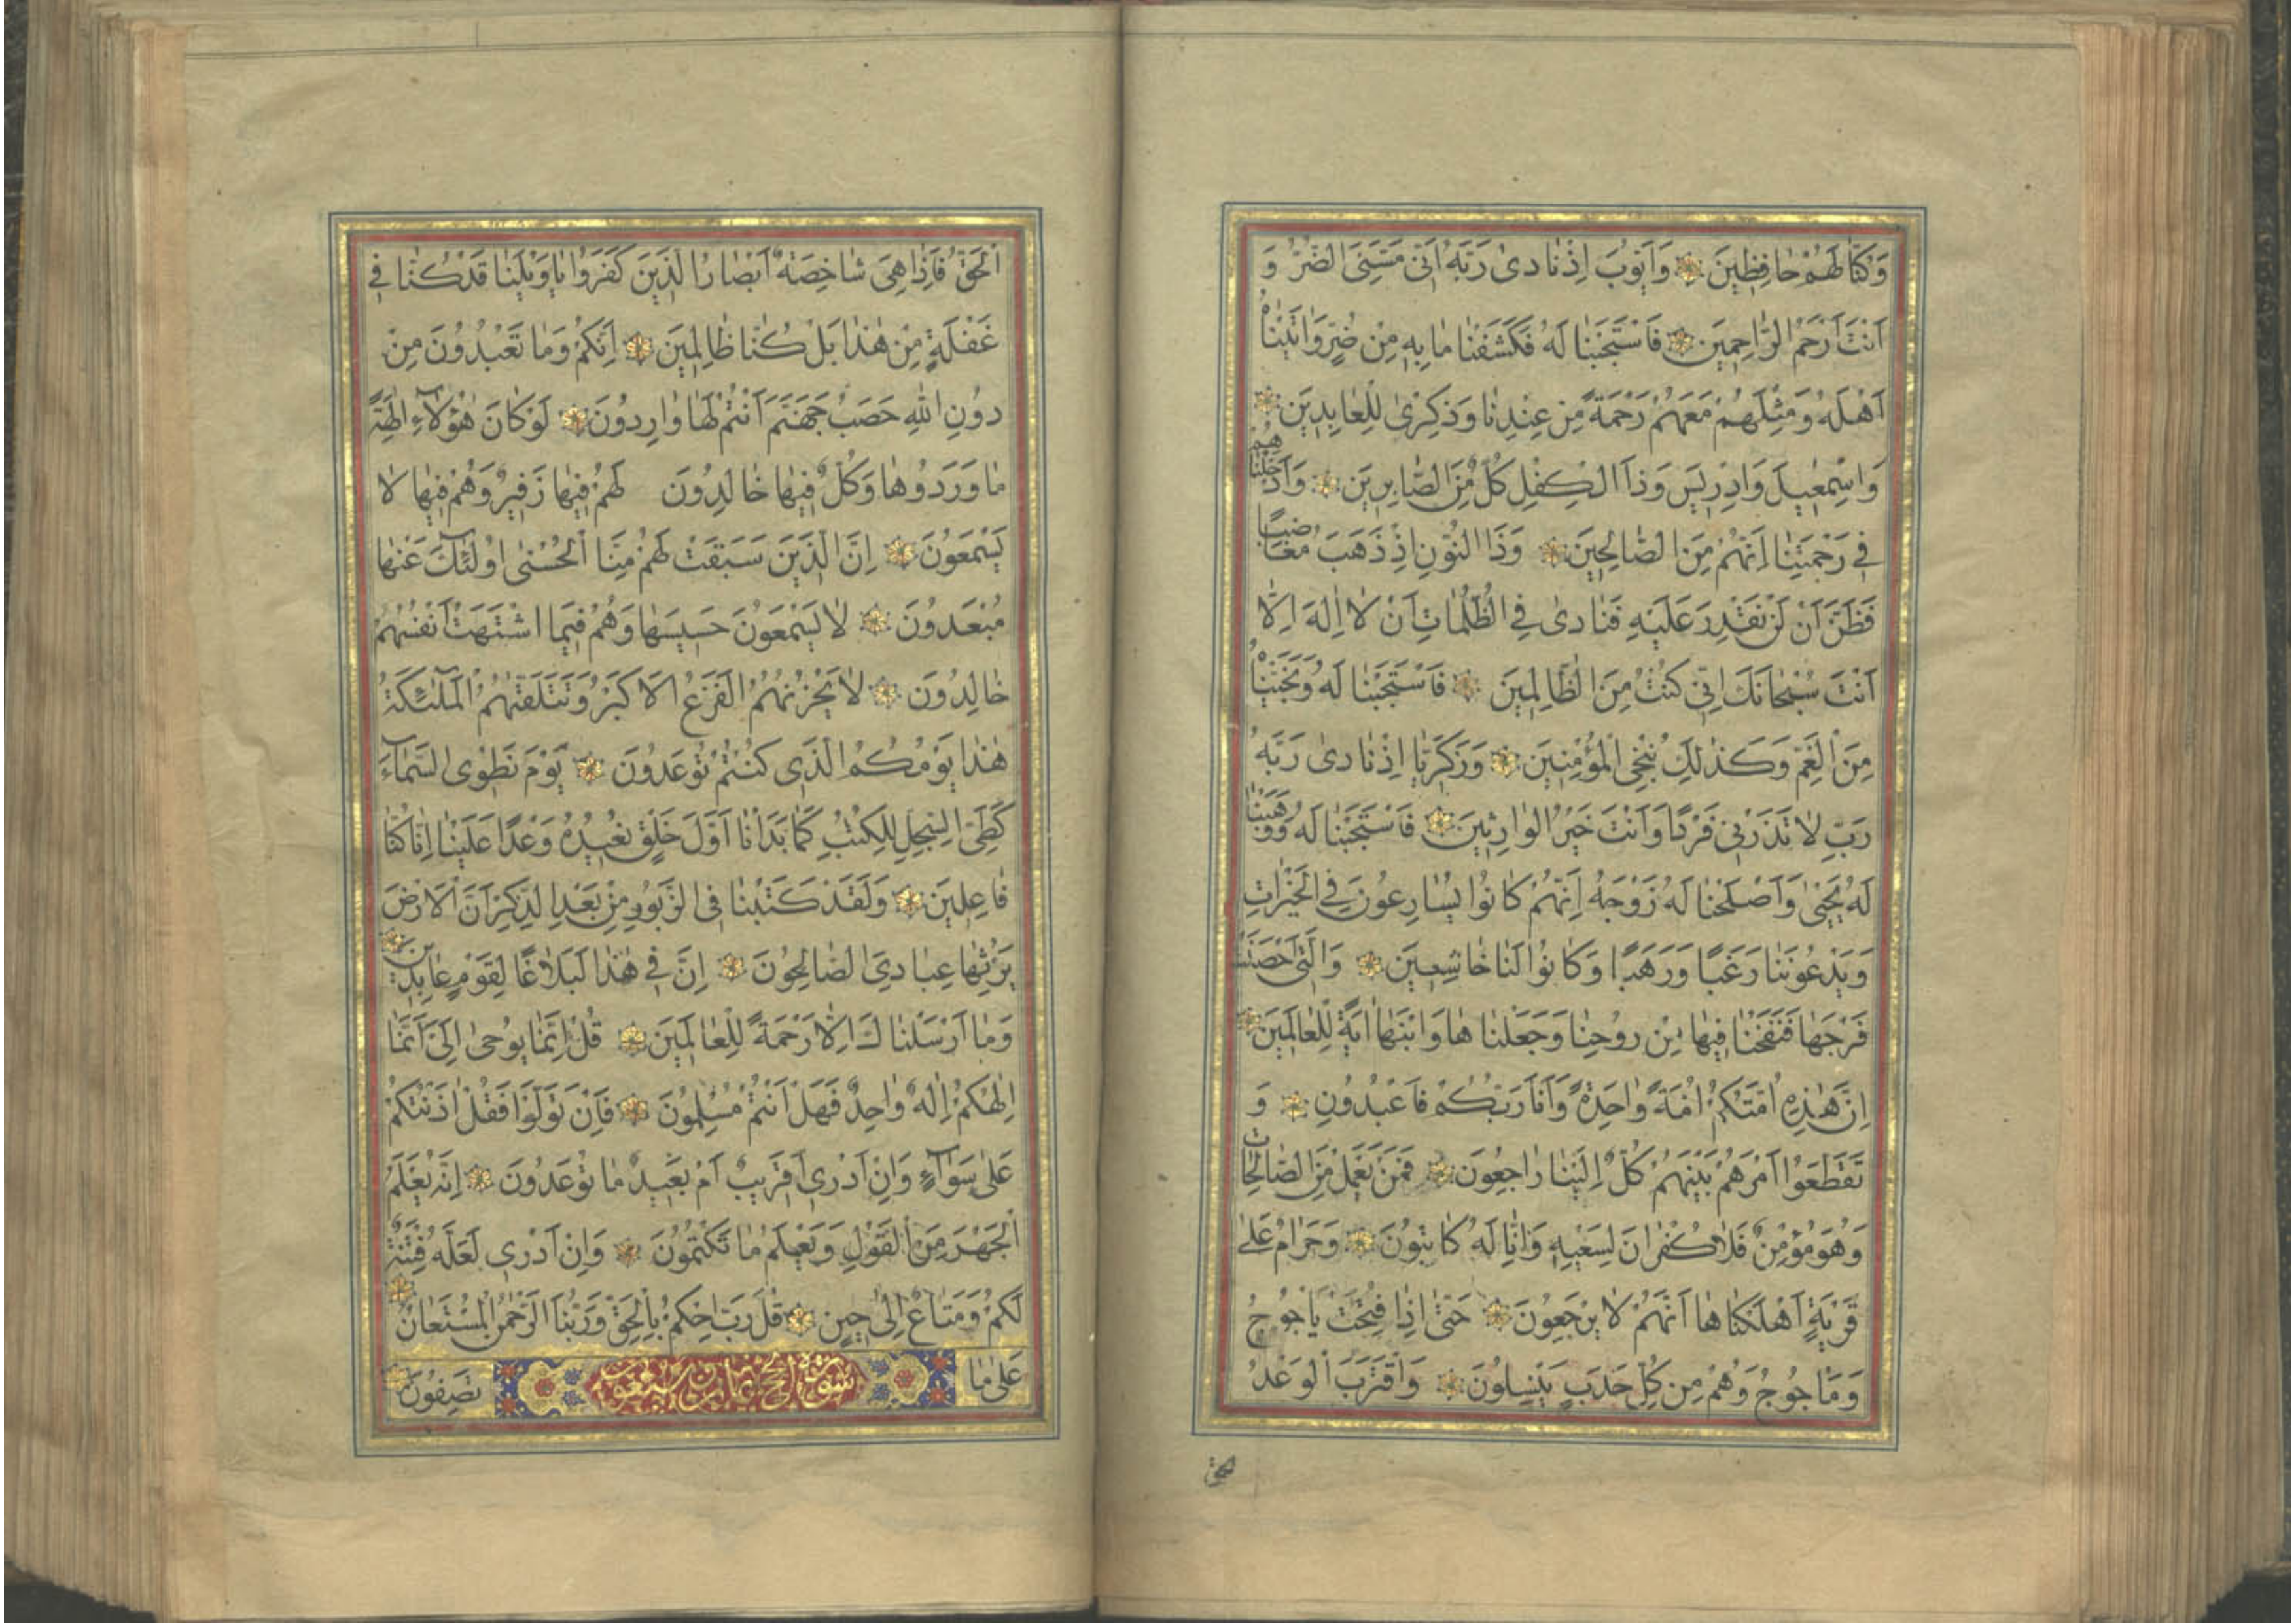 وَكُنَّا لَهُمْ حَافِظِينَ وَاَيُّوبَ اِذْ نَادىٰ رَبَّهُ اَنّى مَسَّنِىَ الضُّرُّ وَ
اَنْتَ اَرْحَمُ الرَّاحِمِينَ فَاسْتَجَبْنَا لَهُ فَكَشَفْنَا مَا بِهِ مِنْ ضُرٍّ وَاٰتَيْنَاهُ
اَهْلَهُ وَمِثْلَهُمْ مَعَهُمْ رَحْمَةً مِنْ عِنْدِنَا وَذِكْرىٰ لِلْعَابِدِينَ
وَاِسْمٰعِيلَ وَاِدْرِيسَ وَذَا الْكِفْلِ كُلٌّ مِنَ الصَّابِرِينَ وَاَدْخَلْنَاهُمْ
فِى رَحْمَتِنَا اِنَّهُمْ مِنَ الصَّالِحِينَ وَذَا النُّونِ اِذْ ذَهَبَ مُغَاضِبًا
فَظَنَّ اَنْ لَنْ نَقْدِرَ عَلَيْهِ فَنَادىٰ فِى الظُّلُمَاتِ اَنْ لَا اِلٰهَ اِلَّا
اَنْتَ سُبْحَانَكَ اِنّى كُنْتُ مِنَ الظَّالِمِينَ فَاسْتَجَبْنَا لَهُ وَنَجَّيْنَاهُ
مِنَ الْغَمِّ وَكَذٰلِكَ نُنْجِى الْمُؤْمِنِينَ وَزَكَرِيَّا اِذْ نَادىٰ رَبَّهُ
رَبِّ لَا تَذَرْنِى فَرْدًا وَاَنْتَ خَيْرُ الْوَارِثِينَ فَاسْتَجَبْنَا لَهُ وَوَهَبْنَا
لَهُ يَحْيىٰ وَاَصْلَحْنَا لَهُ زَوْجَهُ اِنَّهُمْ كَانُوا يُسَارِعُونَ فِى الْخَيْرَاتِ
وَيَدْعُونَنَا رَغَبًا وَرَهَبًا وَكَانُوا لَنَا خَاشِعِينَ وَالَّتِى اَحْصَنَتْ
فَرْجَهَا فَنَفَخْنَا فِيهَا مِنْ رُوحِنَا وَجَعَلْنَاهَا وَابْنَهَا اٰيَةً لِلْعَالَمِينَ
اِنَّ هٰذِهِ اُمَّتُكُمْ اُمَّةً وَاحِدَةً وَاَنَا رَبُّكُمْ فَاعْبُدُونِ وَ
تَقَطَّعُوا اَمْرَهُمْ بَيْنَهُمْ كُلٌّ اِلَيْنَا رَاجِعُونَ فَمَنْ يَعْمَلْ مِنَ الصَّالِحَاتِ
وَهُوَ مُؤْمِنٌ فَلَا كُفْرَانَ لِسَعْيِهِ وَاِنَّا لَهُ كَاتِبُونَ وَحَرَامٌ عَلىٰ
قَرْيَةٍ اَهْلَكْنَاهَا اَنَّهُمْ لَا يَرْجِعُونَ حَتّىٰ اِذَا فُتِحَتْ يَاْجُوجُ
وَمَاْجُوجُ وَهُمْ مِنْ كُلِّ حَدَبٍ يَنْسِلُونَ وَاقْتَرَبَ الْوَعْدُ
الحق
الْحَقُّ فَاِذَا هِىَ شَاخِصَةٌ اَبْصَارُ الَّذِينَ كَفَرُوا يَا وَيْلَنَا قَدْ كُنَّا فِى
غَفْلَةٍ مِنْ هٰذَا بَلْ كُنَّا ظَالِمِينَ اِنَّكُمْ وَمَا تَعْبُدُونَ مِنْ
دُونِ اللّٰهِ حَصَبُ جَهَنَّمَ اَنْتُمْ لَهَا وَارِدُونَ لَوْ كَانَ هٰؤُلَاۤءِ اٰلِهَةً
مَا وَرَدُوهَا وَكُلٌّ فِيهَا خَالِدُونَ لَهُمْ فِيهَا زَفِيرٌ وَهُمْ فِيهَا لَا
يَسْمَعُونَ اِنَّ الَّذِينَ سَبَقَتْ لَهُمْ مِنَّا الْحُسْنىٰ اُولٰۤئِكَ عَنْهَا
مُبْعَدُونَ لَا يَسْمَعُونَ حَسِيسَهَا وَهُمْ فِيمَا اشْتَهَتْ اَنْفُسُهُمْ
خَالِدُونَ لَا يَحْزُنُهُمُ الْفَزَعُ الْاَكْبَرُ وَتَتَلَقّٰيهُمُ الْمَلٰۤئِكَةُ
هٰذَا يَوْمُكُمُ الَّذِى كُنْتُمْ تُوعَدُونَ يَوْمَ نَطْوِى السَّمَاۤءَ
كَطَىِّ السِّجِلِّ لِلْكُتُبِ كَمَا بَدَاْنَا اَوَّلَ خَلْقٍ نُعِيدُهُ وَعْدًا عَلَيْنَا اِنَّا كُنَّا
فَاعِلِينَ وَلَقَدْ كَتَبْنَا فِى الزَّبُورِ مِنْ بَعْدِ الذِّكْرِ اَنَّ الْاَرْضَ
يَرِثُهَا عِبَادِىَ الصَّالِحُونَ اِنَّ فِى هٰذَا لَبَلَاغًا لِقَوْمٍ عَابِدِينَ
وَمَا اَرْسَلْنَاكَ اِلَّا رَحْمَةً لِلْعَالَمِينَ قُلْ اِنَّمَا يُوحىٰ اِلَىَّ اَنَّمَا
اِلٰهُكُمْ اِلٰهٌ وَاحِدٌ فَهَلْ اَنْتُمْ مُسْلِمُونَ فَاِنْ تَوَلَّوْا فَقُلْ اٰذَنْتُكُمْ
عَلىٰ سَوَاۤءٍ وَاِنْ اَدْرِى اَقَرِيبٌ اَمْ بَعِيدٌ مَا تُوعَدُونَ اِنَّهُ يَعْلَمُ
الْجَهْرَ مِنَ الْقَوْلِ وَيَعْلَمُ مَا تَكْتُمُونَ وَاِنْ اَدْرِى لَعَلَّهُ فِتْنَةٌ
لَكُمْ وَمَتَاعٌ اِلىٰ حِينٍ قُلْ رَبِّ احْكُمْ بِالْحَقِّ وَرَبُّنَا الرَّحْمٰنُ الْمُسْتَعَانُ
عَلىٰ مَا سورة الحج ثمان وسبعون تَصِفُونَ